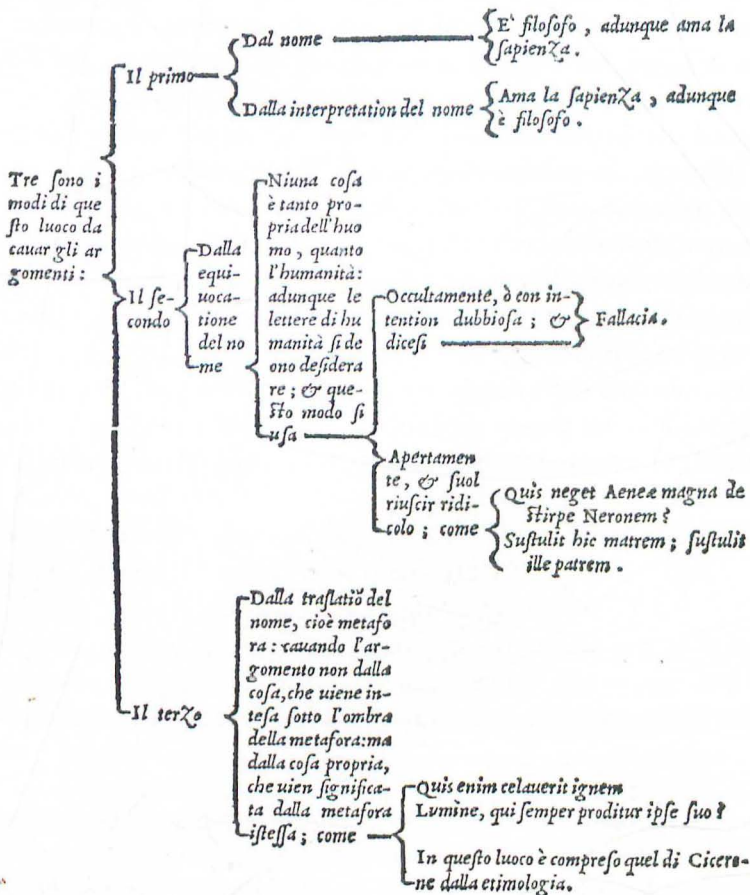 Tre ſono i
modi di que
ſto luoco da
cauar gli ar
gomenti :
Il primo
Dal nome
E' filoſofo , adunque ama la
ſapienza .
Dalla interpretation del nome
Ama la ſapienza , adunque
è filoſofo .
Il ſe-
condo
Dalla
equi-
uoca-
tione
del no
me
Niuna coſa
è tanto pro-
pria dell'huo
mo , quanto
l'humanità:
adunque le
lettere di hu
manità ſi de
ono deſidera
re ; & que-
ſto modo ſi
uſa
Occultamente, ò con in-
tention dubbioſa ; &
diceſi
Fallacia.
Apertamen
te , & ſuol
riuſcir ridi-
colo ; come
Quis neget Aeneæ magna de
ſtirpe Neronem ?
Suſtulit hic matrem ; ſuſtulit
ille patrem .
Il terzo
Dalla traſlatiõ del
nome, cioè metafo
ra : cauando l'ar-
gomento non dalla
coſa, che uiene in-
teſa ſotto l'ombra
della metafora: ma
dalla coſa propria,
che uien ſignifica-
ta dalla metafora
iſteſſa ; come
Quis enim celauerit ignem
Lumine, qui ſemper proditur ipſe ſuo ?
In queſto luoco è compreſo quel di Cicero-
ne dalla etimologia.